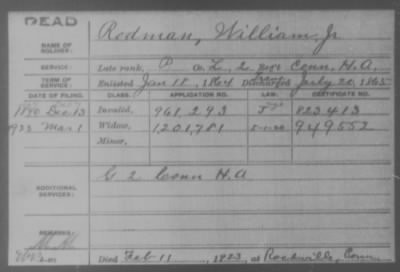 DEAD
NAME OF SOLDIER: Rodman, William, Jr
SERVICE: Late rank, P Co. L, 2 Reg't Conn. H.A.
TERM OF SERVICE: Enlisted Jan 18, 1864 Discharged July 20, 1865
DATE OF FILING. CLASS. APPLICATION NO. LAW. CERTIFICATE NO.
1890 Dec 13 Invalid, 961,293 823413
1923 Mar 1 Widow, 1201,781 949552
Minor,
ADDITIONAL SERVICES: G 2 Conn H.A
REMARKS:
Died Feb 11, 1923, at Rockville, Conn